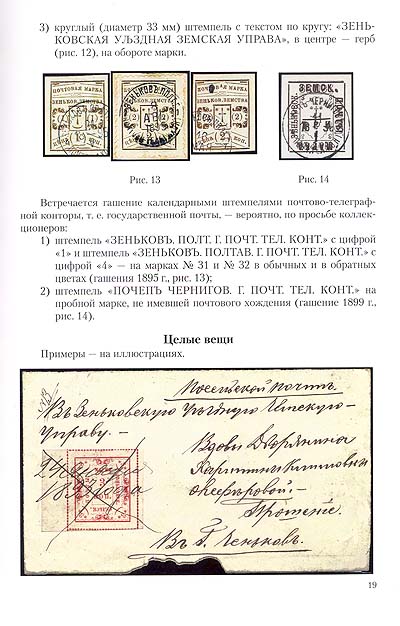 3) круглый (диаметр 33 мм) штемпель с текстом по кругу: «ЗЕНЬ-
КОВСКАЯ УѢЗДНАЯ ЗЕМСКАЯ УПРАВА», в центре — герб
(рис. 12), на обороте марки.
ПОЧТОВАЯ МАРКА
ЗЕНЬКОВ. ЗЕМСТВА
ПОЧТОВАЯ МАРКА
ЗЕНЬКОВ. ЗЕМСТВА
ЗЕМСК.
Рис. 13
Рис. 14
Встречается гашение календарными штемпелями почтово-телеграф-
ной конторы, т. е. государственной почты, — вероятно, по просьбе коллек-
ционеров:
1) штемпель «ЗЕНЬКОВЪ. ПОЛТ. Г. ПОЧТ. ТЕЛ. КОНТ.» с цифрой
«1» и штемпель «ЗЕНЬКОВЪ. ПОЛТАВ. Г. ПОЧТ. ТЕЛ. КОНТ.» с
цифрой «4» — на марках № 31 и № 32 в обычных и в обратных
цветах (гашения 1895 г., рис. 13);
2) штемпель «ПОЧЕПЪ ЧЕРНИГОВ. Г. ПОЧТ. ТЕЛ. КОНТ.» на
пробной марке, не имевшей почтового хождения (гашение 1899 г.,
рис. 14).
Целые вещи
Примеры — на иллюстрациях.
почтъ.
Въ Зеньковскую Уѣздную Земскую
Управу.—
Вдовы Дворянина
Прошеніе.
Въ Г. Зеньковъ.
19